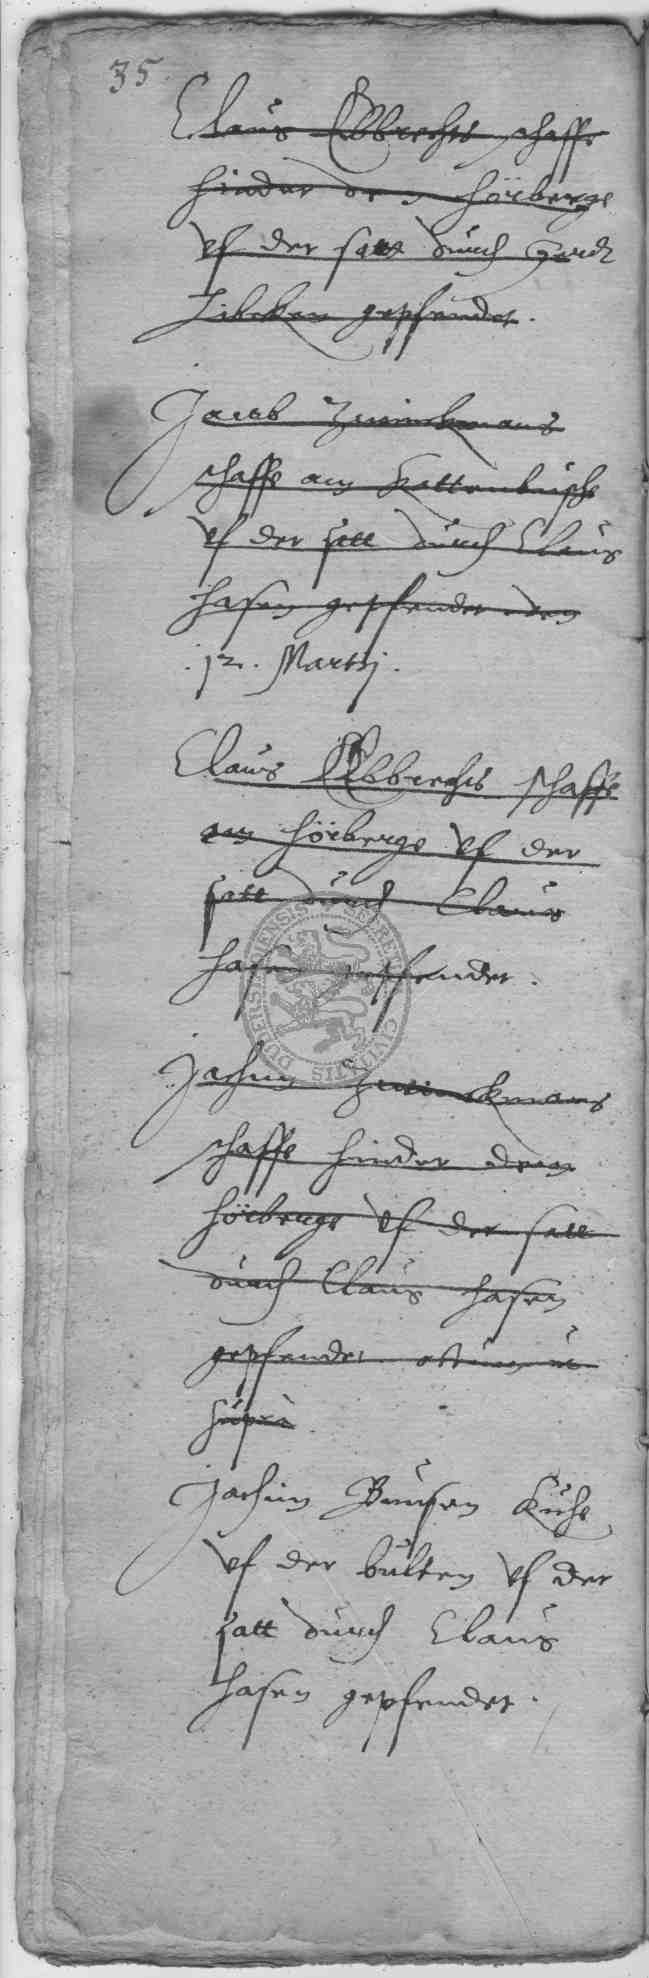 35
Claus Ebbrechts schaffe
hinder dem Hörberge
uf der satt durch Gerdt
Zilcken gepfendet.
Jacob Zwinckmans
schaffe am Kattenbusche
uf der satt durch Claus
Hasen gepfendet den
12. Martii.
Claus Ebbrechts schaffe
am Hörberge uf der
satt durch Claus
Hasen gepfendet.
Jachim Zwinckmans
schaffe hinder dem
Hörberge uf der satt
durch Claus Hasen
gepfendet ut
supra
Jachim Bausen Kuhe
uf der bulten uf der
satt durch Claus
Hasen gepfendet.
SECRETUM CIVITATIS DUDERS